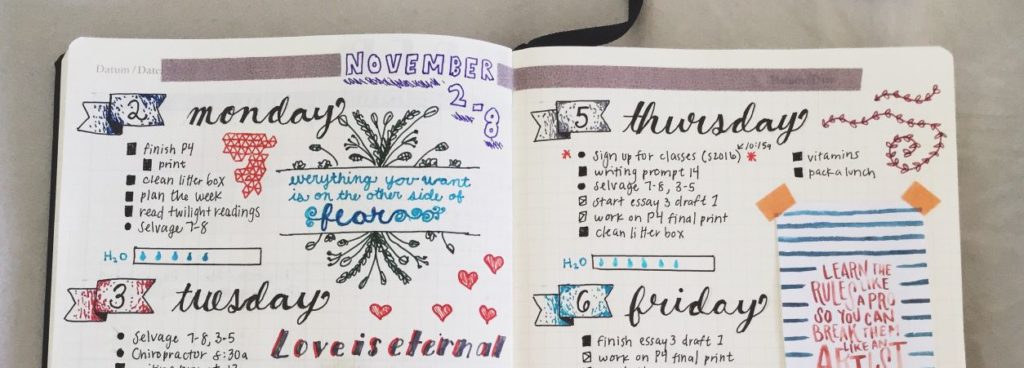 Datum / Date:
NOVEMBER
2-8
2 monday
finish P4
print
clean litter box
plan the week
read twilight readings
selvage 7-8
H2O
everything you want
is on the other side of
fear
3 tuesday
Selvage 7-8, 3-5
Chiropractor 8:30a
Love is eternal
5 thursday
sign up for classes (S2016)
writing prompt 14
selvage 7-8, 3-5
start essay 3 draft 1
work on P4 final print
clean litter box
vitamins
pack a lunch
H2O
6 friday
finish essay 3 draft 1
work on P4 final print
LEARN THE
RULES LIKE
A PRO
SO YOU CAN
BREAK THEM
LIKE AN
ARTIST